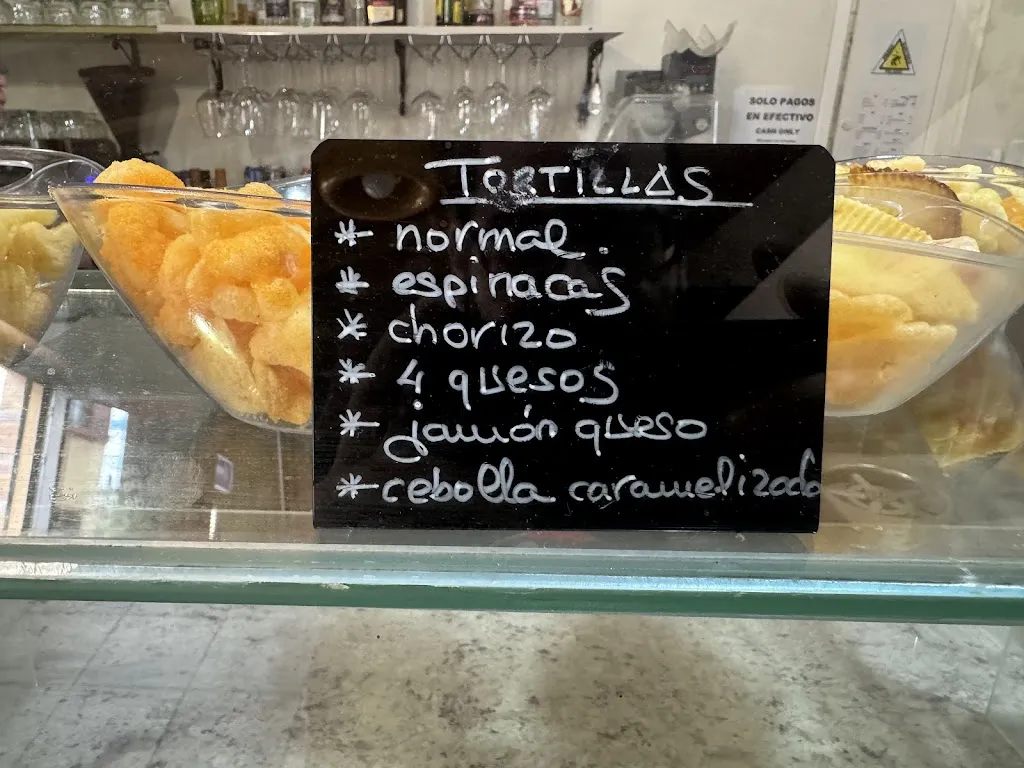 SOLO PAGOS
EN EFECTIVO
CASH ONLY
TORTILLAS
* normal
* espinacas
* chorizo
* 4 quesos
* jamón queso
* cebolla caramelizada